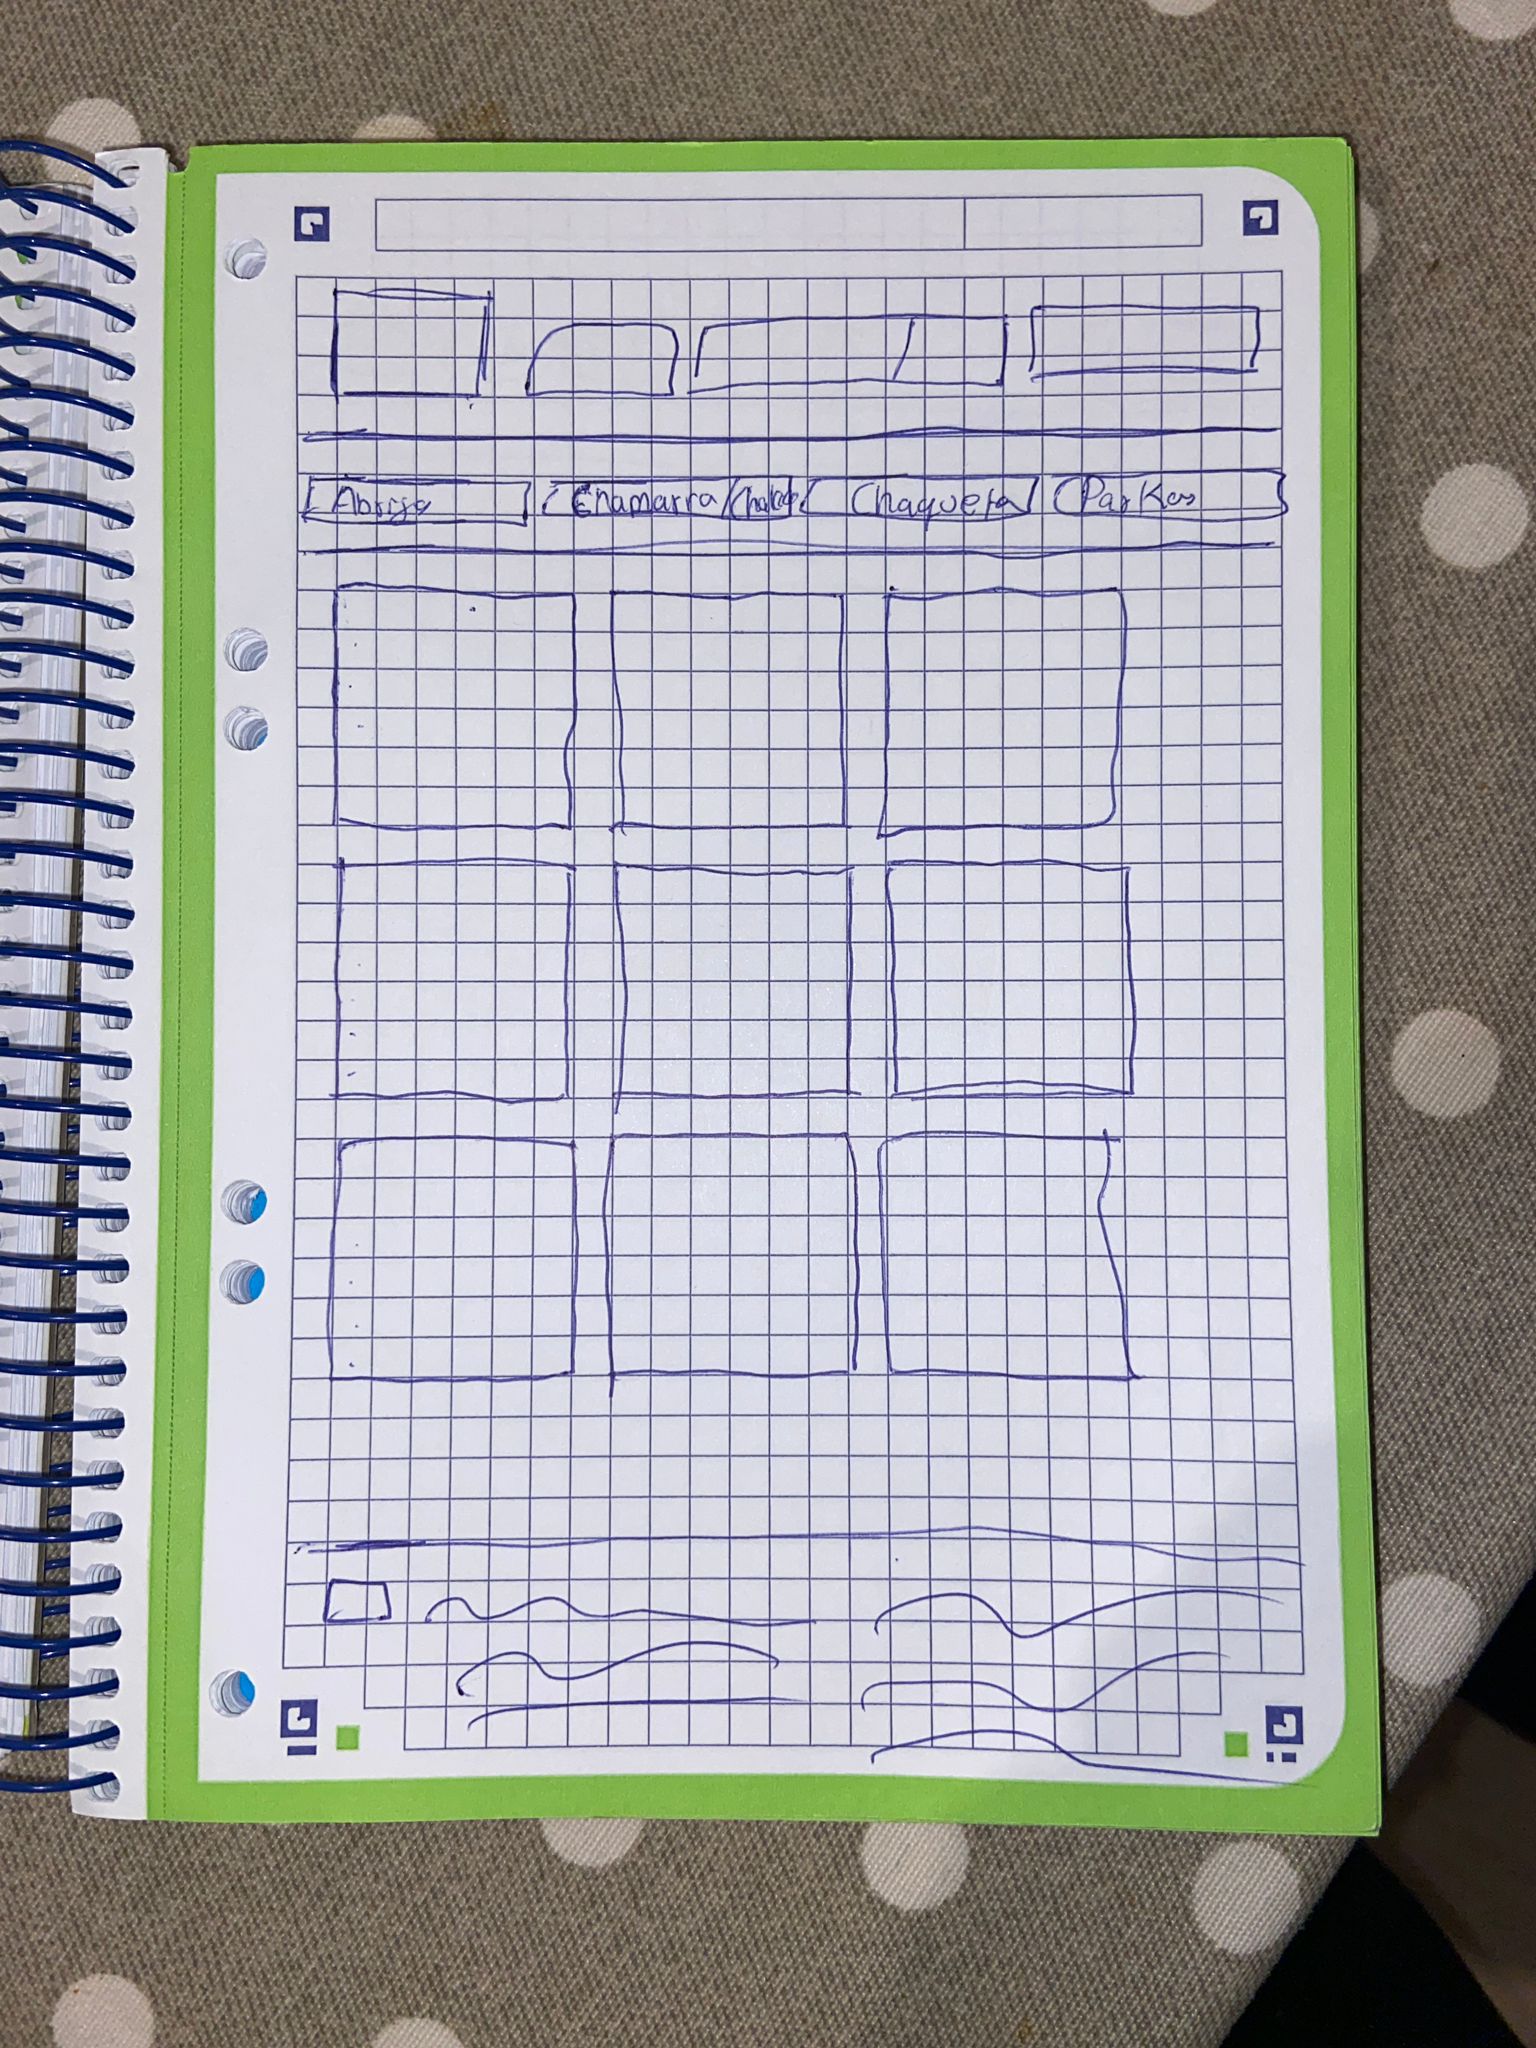 Abrigo Chamarra Chaleco Chaqueta Parkas